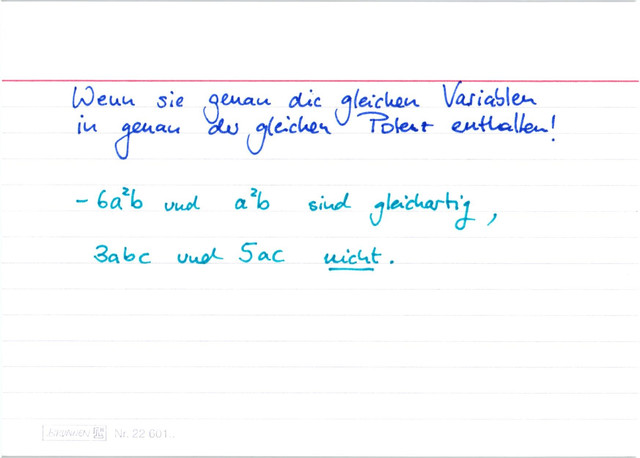 Wenn sie genau die gleichen Variablen
in genau der gleichen Potenz enthalten!
- 6a²b und a²b sind gleichartig,
3abc und 5ac nicht.
BRUNNEN Nr. 22 601..